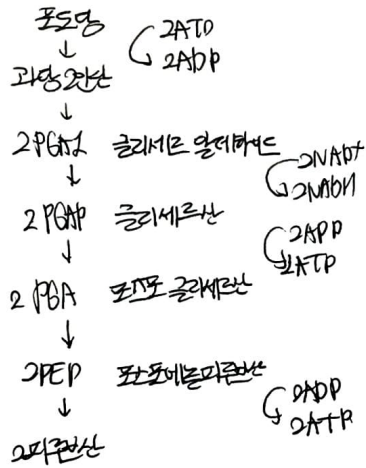 포도당
2ATP
2ADP
과당2인산
2PGAL 글리세르 알데하이드
2NAD+
2NADH
2 PGAP 글리세르산
2ADP
2ATP
2 PGA 포스포글리세르산
2PEP 포스포에놀피루브산
2ADP
2ATP
2피루브산